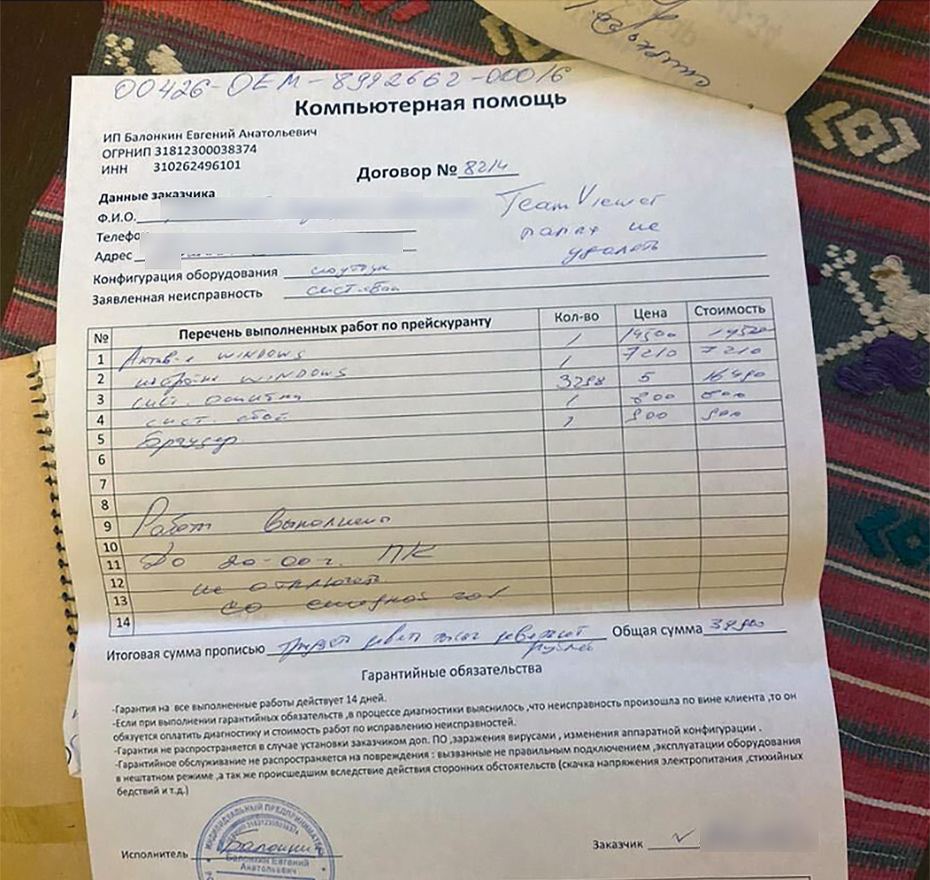 00426-OEM-8992662-00016
Компьютерная помощь
ИП Балонкин Евгений Анатольевич
ОГРНИП 31812300038374
ИНН 310262496101
Договор № 8214
Данные заказчика
Ф.И.О.
TeamViewer
папку не
удалять
Телефо
Адрес
Конфигурация оборудования ноутбук
Заявленная неисправность сист. сбой
№ Перечень выполненных работ по прейскуранту Кол-во Цена Стоимость
1 Актив-я WINDOWS 1 14500 14500
2 WINDOWS 1 7210 7210
3 сист. ошибки 3298 5 16490
4 сист. сбой 1 800 800
5 браузер 1 900 900
6
7
8
9 Работы выполнены
10
11 До 20-00 ПК
12 не отключать
13 со
14
Итоговая сумма прописью рублей Общая сумма
Гарантийные обязательства
-Гарантия на все выполненные работы действует 14 дней.
-Если при выполнении гарантийных обязательств ,в процессе диагностики выяснилось ,что неисправность произошла по вине клиента ,то он
обязуется оплатить диагностику и стоимость работ по исправлению неисправностей.
-Гарантия не распространяется в случае установки заказчиком доп. ПО ,заражения вирусами , изменения аппаратной конфигурации .
-Гарантийное обслуживание не распространяется на повреждения : вызванные не правильным подключением ,эксплуатации оборудования
в нештатном режиме ,а так же происшедшим вследствие действия сторонних обстоятельств (скачка напряжения электропитания ,стихийных
бедствий и т.д.)
ИНДИВИДУАЛЬНЫЙ ПРЕДПРИНИМАТЕЛЬ
Исполнитель Балонкин
Заказчик
Балонкин Евгений
Анатольевич